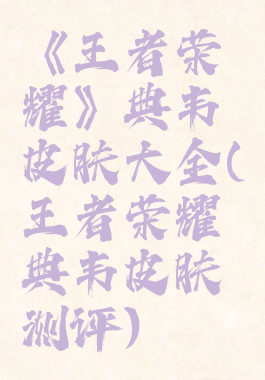 《王者荣
耀》典韦
皮肤大全(
王者荣耀
典韦皮肤
测评)